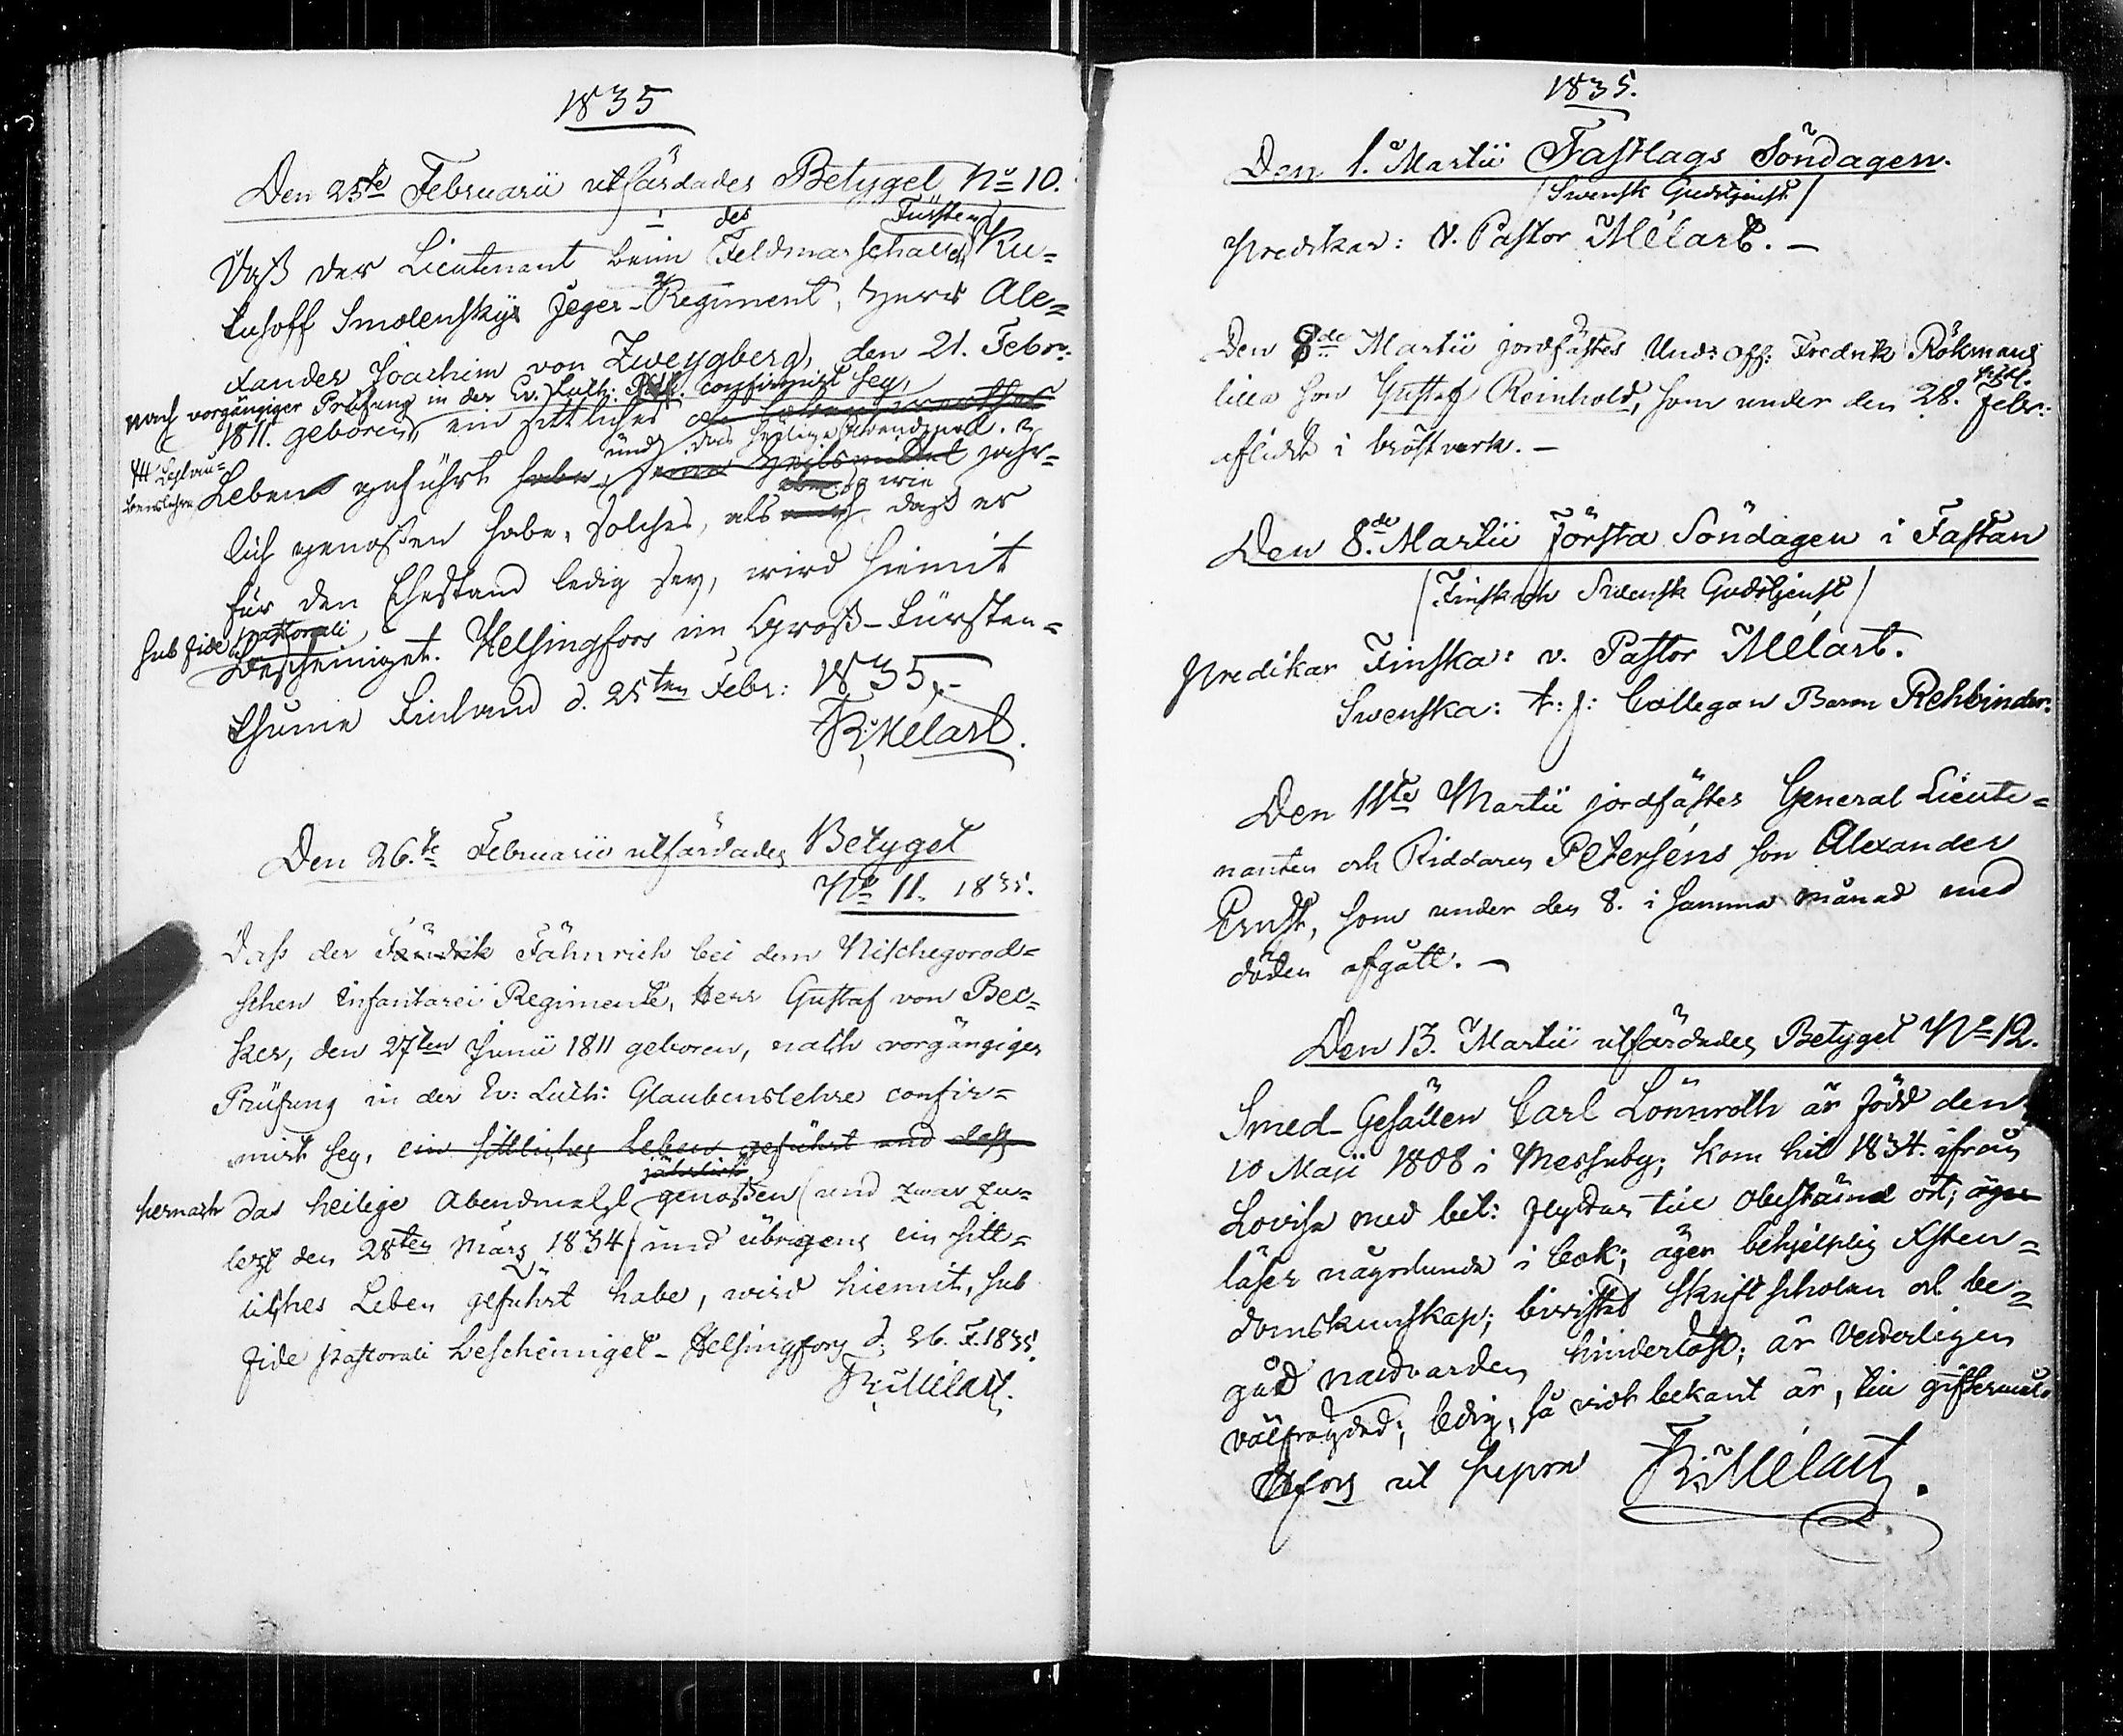 1835
Den 25te Februarii utfärdades Betyget No 10.
des Fürsten
Daß der Lieutenant beim Feldmarschall Ku=
tusoff Smolensky Jeger-Regiment, Herr Ale=
xander Joachim von Zweygberg, den 21. Febr:
nach vorgängiger Prüfung in der Ev. Luth: confirmirt sey,
1811. geboren, ein sittliches
und das heilige Abendmal
Leben geführt habe, seine jähr=
wie
lich genoßen habe, solches, als auch daß er
für den Ehestand ledig sey, wird hiemit
sub fide pastorali
bescheiniget. Helsingfors im Groß-Fürsten=
thume Finland d. 25ten Febr: 1835.-
R: Mélart.
Den 26.te Februarii utfärdades Betyget
No 11. 1835.
Dass der Fändrik Fähnrich bei dem Nischegorod=
schen Infantarei Regimente, Herr Gustaf von Bec=
ker, den 27ten Junii 1811 geboren, nach vorgängiger
Prüfung in der Ev: Luth: Glaubenslehre confir=
mirt sey, ein sittliches Leben geführt und
jährlich
hernach das heilige Abendmahl genoßen (und zwar zu=
lezt den 28ten Märs 1834) und übrigens ein sitt=
liches Leben geführt habe, wird hiemit, sub
fide pastorali bescheiniget - Helsingfors d. 26. F. 1835.
R: Mélart.
1835.
Den 1. Martii Fastlags Söndagen.
(Swensk Gudstjenst)
Predikar: V. Pastor Mélart. -
Den 8de Martii jordfästes Und: Off: Fredrik Röhmans
lilla son Gustaf Reinhold, som under den 28. Febr:
aflidit i bröstverk. -
Den 8.de Martii Första Söndagen i Fastan
(Finsk och Swensk Gudstjenst)
Predikar Finska: v. Pastor Mélart.
Swenska: t: f: Collegan Baron Rehbinder.
Den 11te Martii jordfästes General Lieute=
nanten och Riddaren Peterséns son Alexander
Ernst, som under den 8. i samma månad med
döden afgått. -
Den 13. Martii utfärdades Betyget No 12.
Smed-Gesällen Carl Lönnroth är född den
10 Maji 1808 i Messuby; kom hit 1834. ifrån
Lovisa med bet: flyttar till obestämd ort; äger
läser någorlunda i bok; äger behjelplig Xsten=
domskunskap; bivistat Skriftscholan och be=
gåd nattvarden hinderlöst; är vederligen
välfrägdad; ledig, så vidt bekant är, till giftermål.
Hfors ut supra R: Mélart.